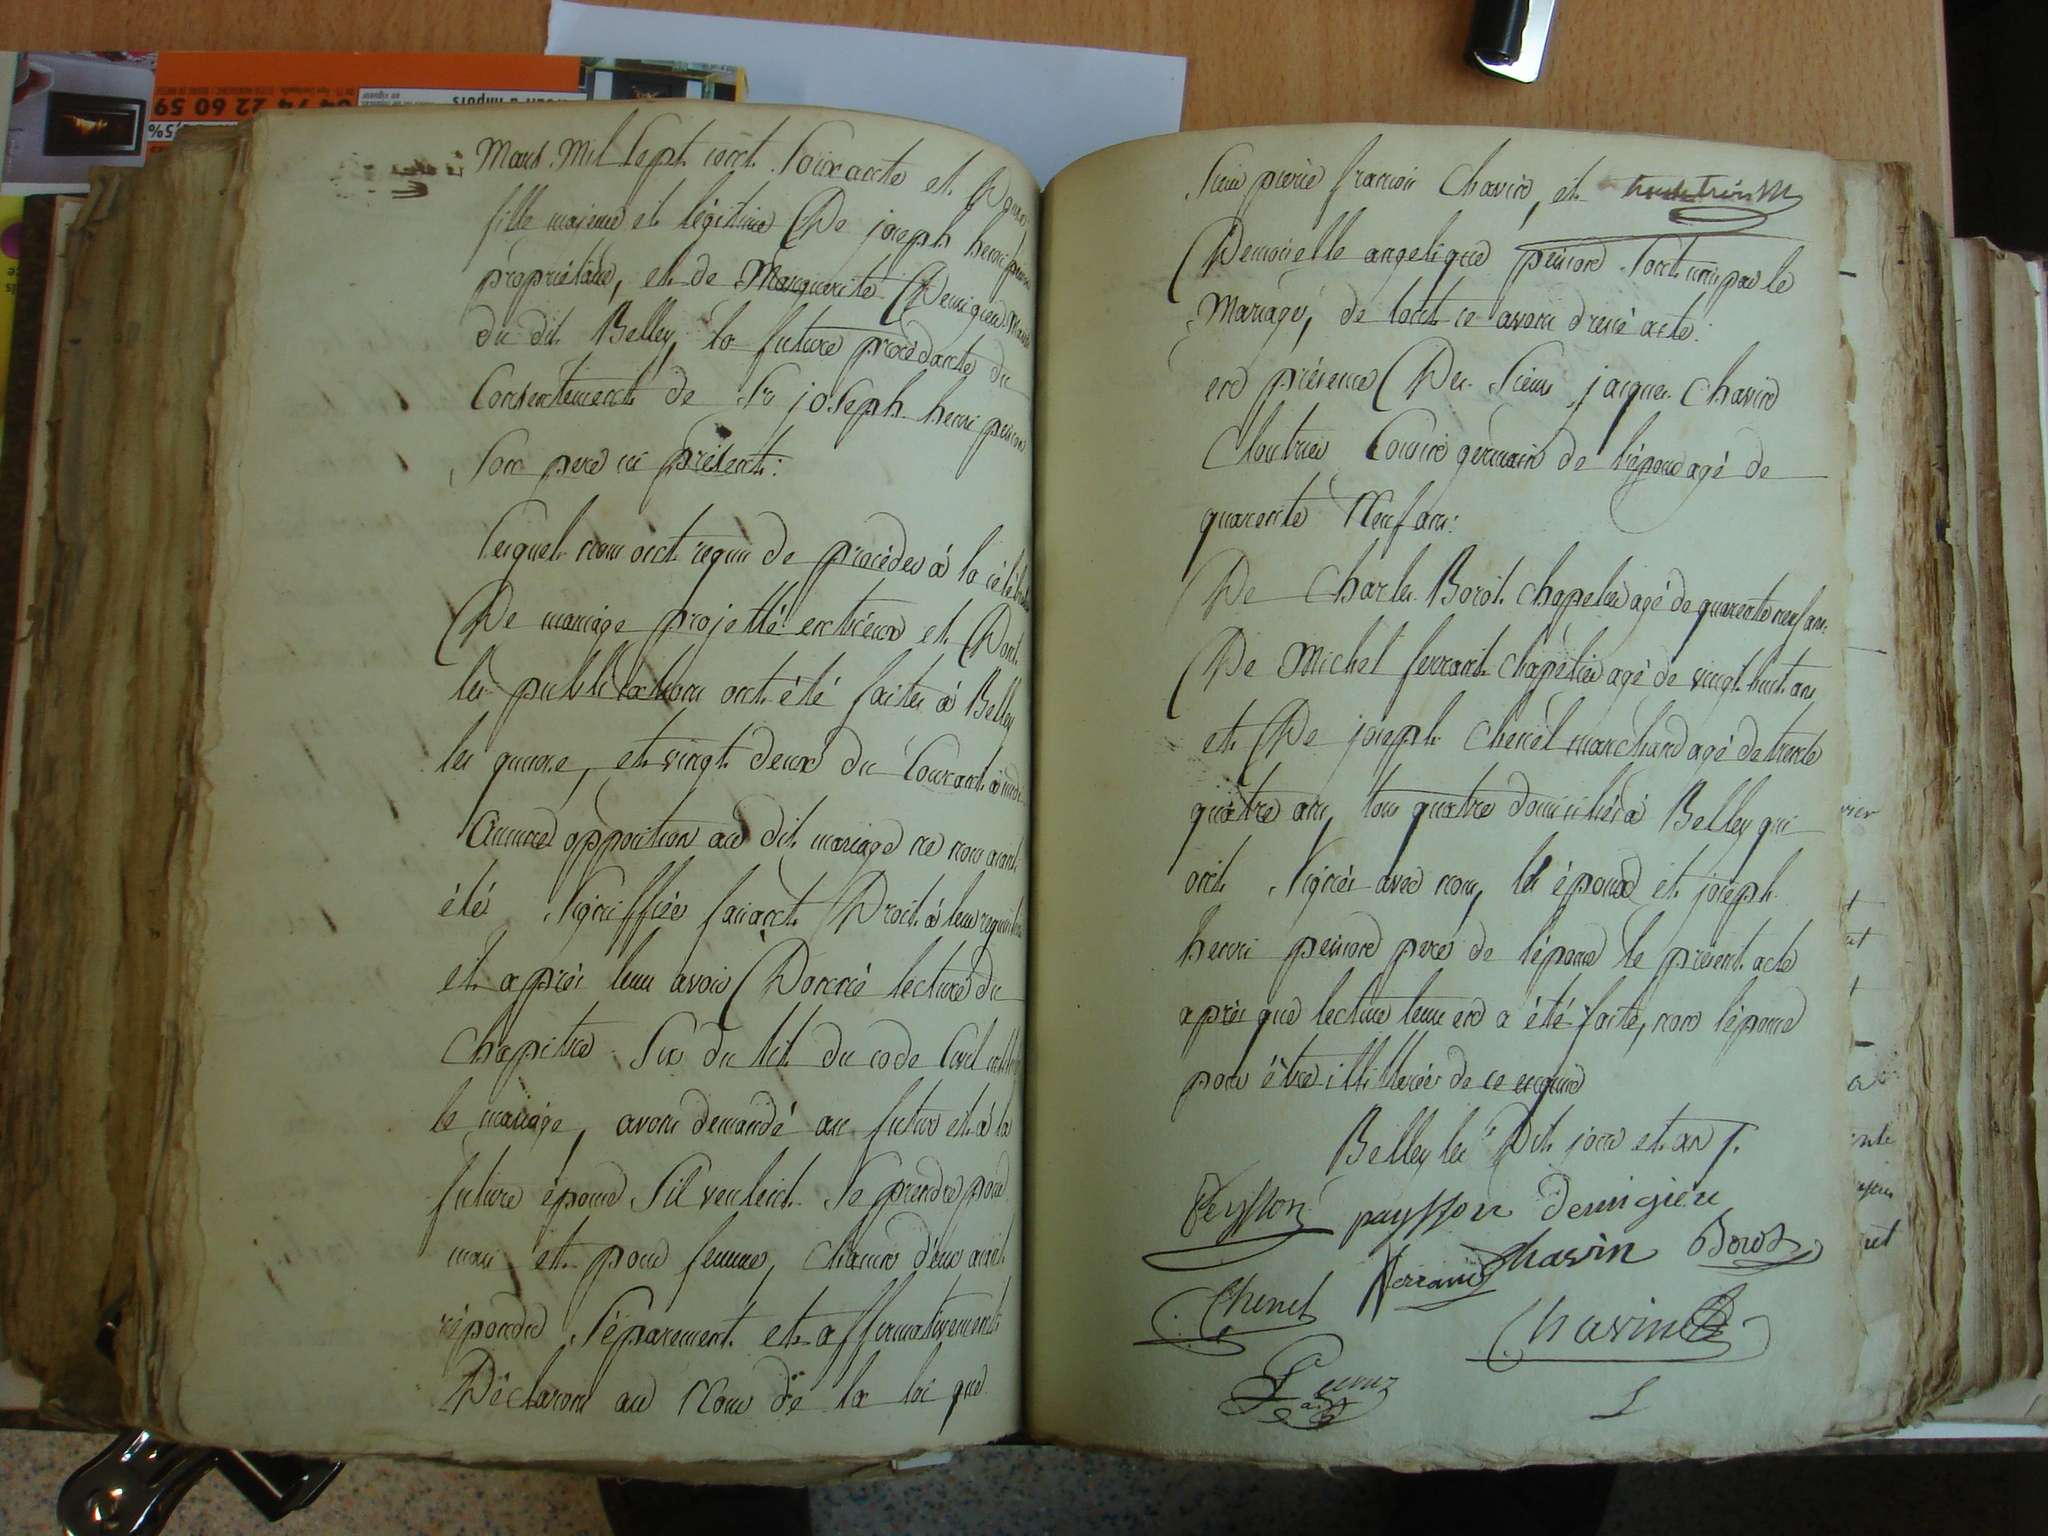 Mars Mil Sept cent Soixante et Quinze
fille majeure et légitime De joseph henri peisson
propriétaire, et de Marguerite Demigieu Mariés
du dit Belley, la future procédante du
Consentement de Sr joseph henri peisson
Son pere ici présent:
lesquels nous ont requis de procéder à la célébration
De mariage projetté entr'eux et Dont
les publications ont été faites à Belley
les quinze, et vingt deux du Courant à midi
Aucune opposition au dit mariage ne nous aiant
été Signiffiée faisant Droit à leur requisition
et après leur avoir Donné lecture du
Chapitre Six du tit. du code Civil intitulé
le mariage, avons demandé au futur et à la
future épouse S'il veulent Se prendre pour
mari et pour femme, chacun d'eux aiant
répondu Séparement et affirmativement
Déclarons au Nom de la loi que
Sieur pierre francois Chavin, et
Demoiselle angelique peisson Sont unis par le
Mariage, de tout ce avons dressé acte:
en présence Des Sieurs jacques Chavin
Cloutrier Cousin germain de l'époux agé de
quarente Neuf ans:
De Charles Borot Chapelier agé de quarente neuf ans:
De Michel ferrant Chapelier agé de vingt huit ans
et De joseph Chenel marchand agé de trente
quatre ans, tous quatre domiciliés à Belley qui
ont Signés avec nous, les époux et joseph
henri peisson pere de l'épouse le présent acte
après que lecture leur en a été faite, non l'épouse
pour être illitterée de ce enquise
Belley les Dit jour et an
Peysson paysson demigieu
Chavin Borot
Chenel ferrand
Chavin